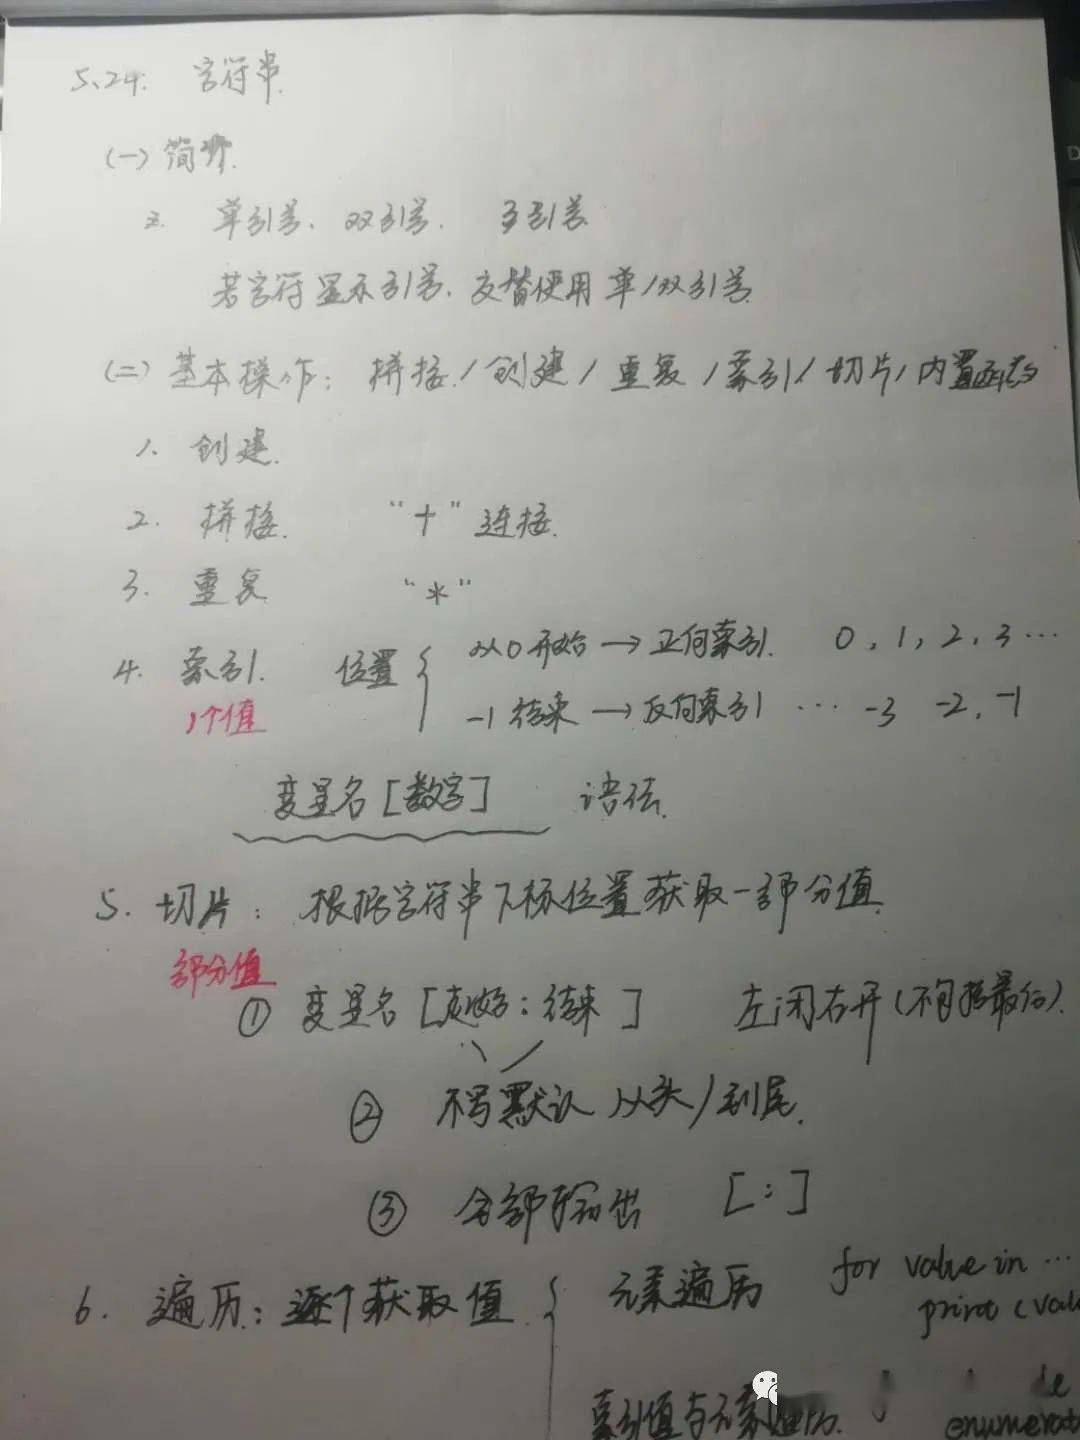 5.24. 字符串.
(一) 简介.
2. 单引号. 双引号. 三引号
若字符显示引号. 交替使用单/双引号.
(二) 基本操作: 拼接/创建/重复/索引/切片/内置函数
1. 创建.
2. 拼接. "+" 连接.
3. 重复 "*"
4. 索引. 位置 { 从0开始 → 正向索引. 0, 1, 2, 3 ...
1个值 -1结束 → 反向索引 ... -3 -2, -1
变量名 [数字] 语法.
5. 切片: 根据字符串下标位置获取一部分值.
部分值
① 变量名 [起始: 结束] 左闭右开 (不包括最后).
② 不写默认 从头/到尾.
③ 全部输出 [:]
6. 遍历: 逐个获取值 { 元素遍历 for value in ...
print (val
索引值与元素遍历. de
enumerat